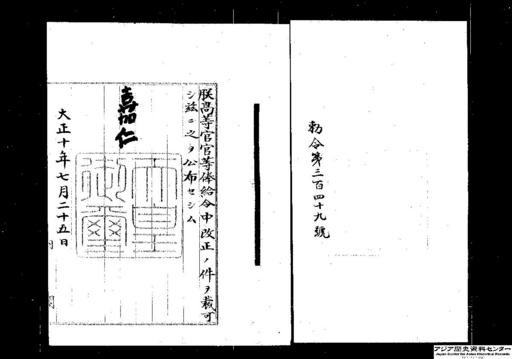 勅令第三百四十九號
朕高等官官等俸給令中改正ノ件ヲ裁可
シ茲ニ之ヲ公布セシム
嘉仁
天皇
御璽
大正十年七月二十五日
アジア歴史資料センター
Japan Center for Asian Historical Records